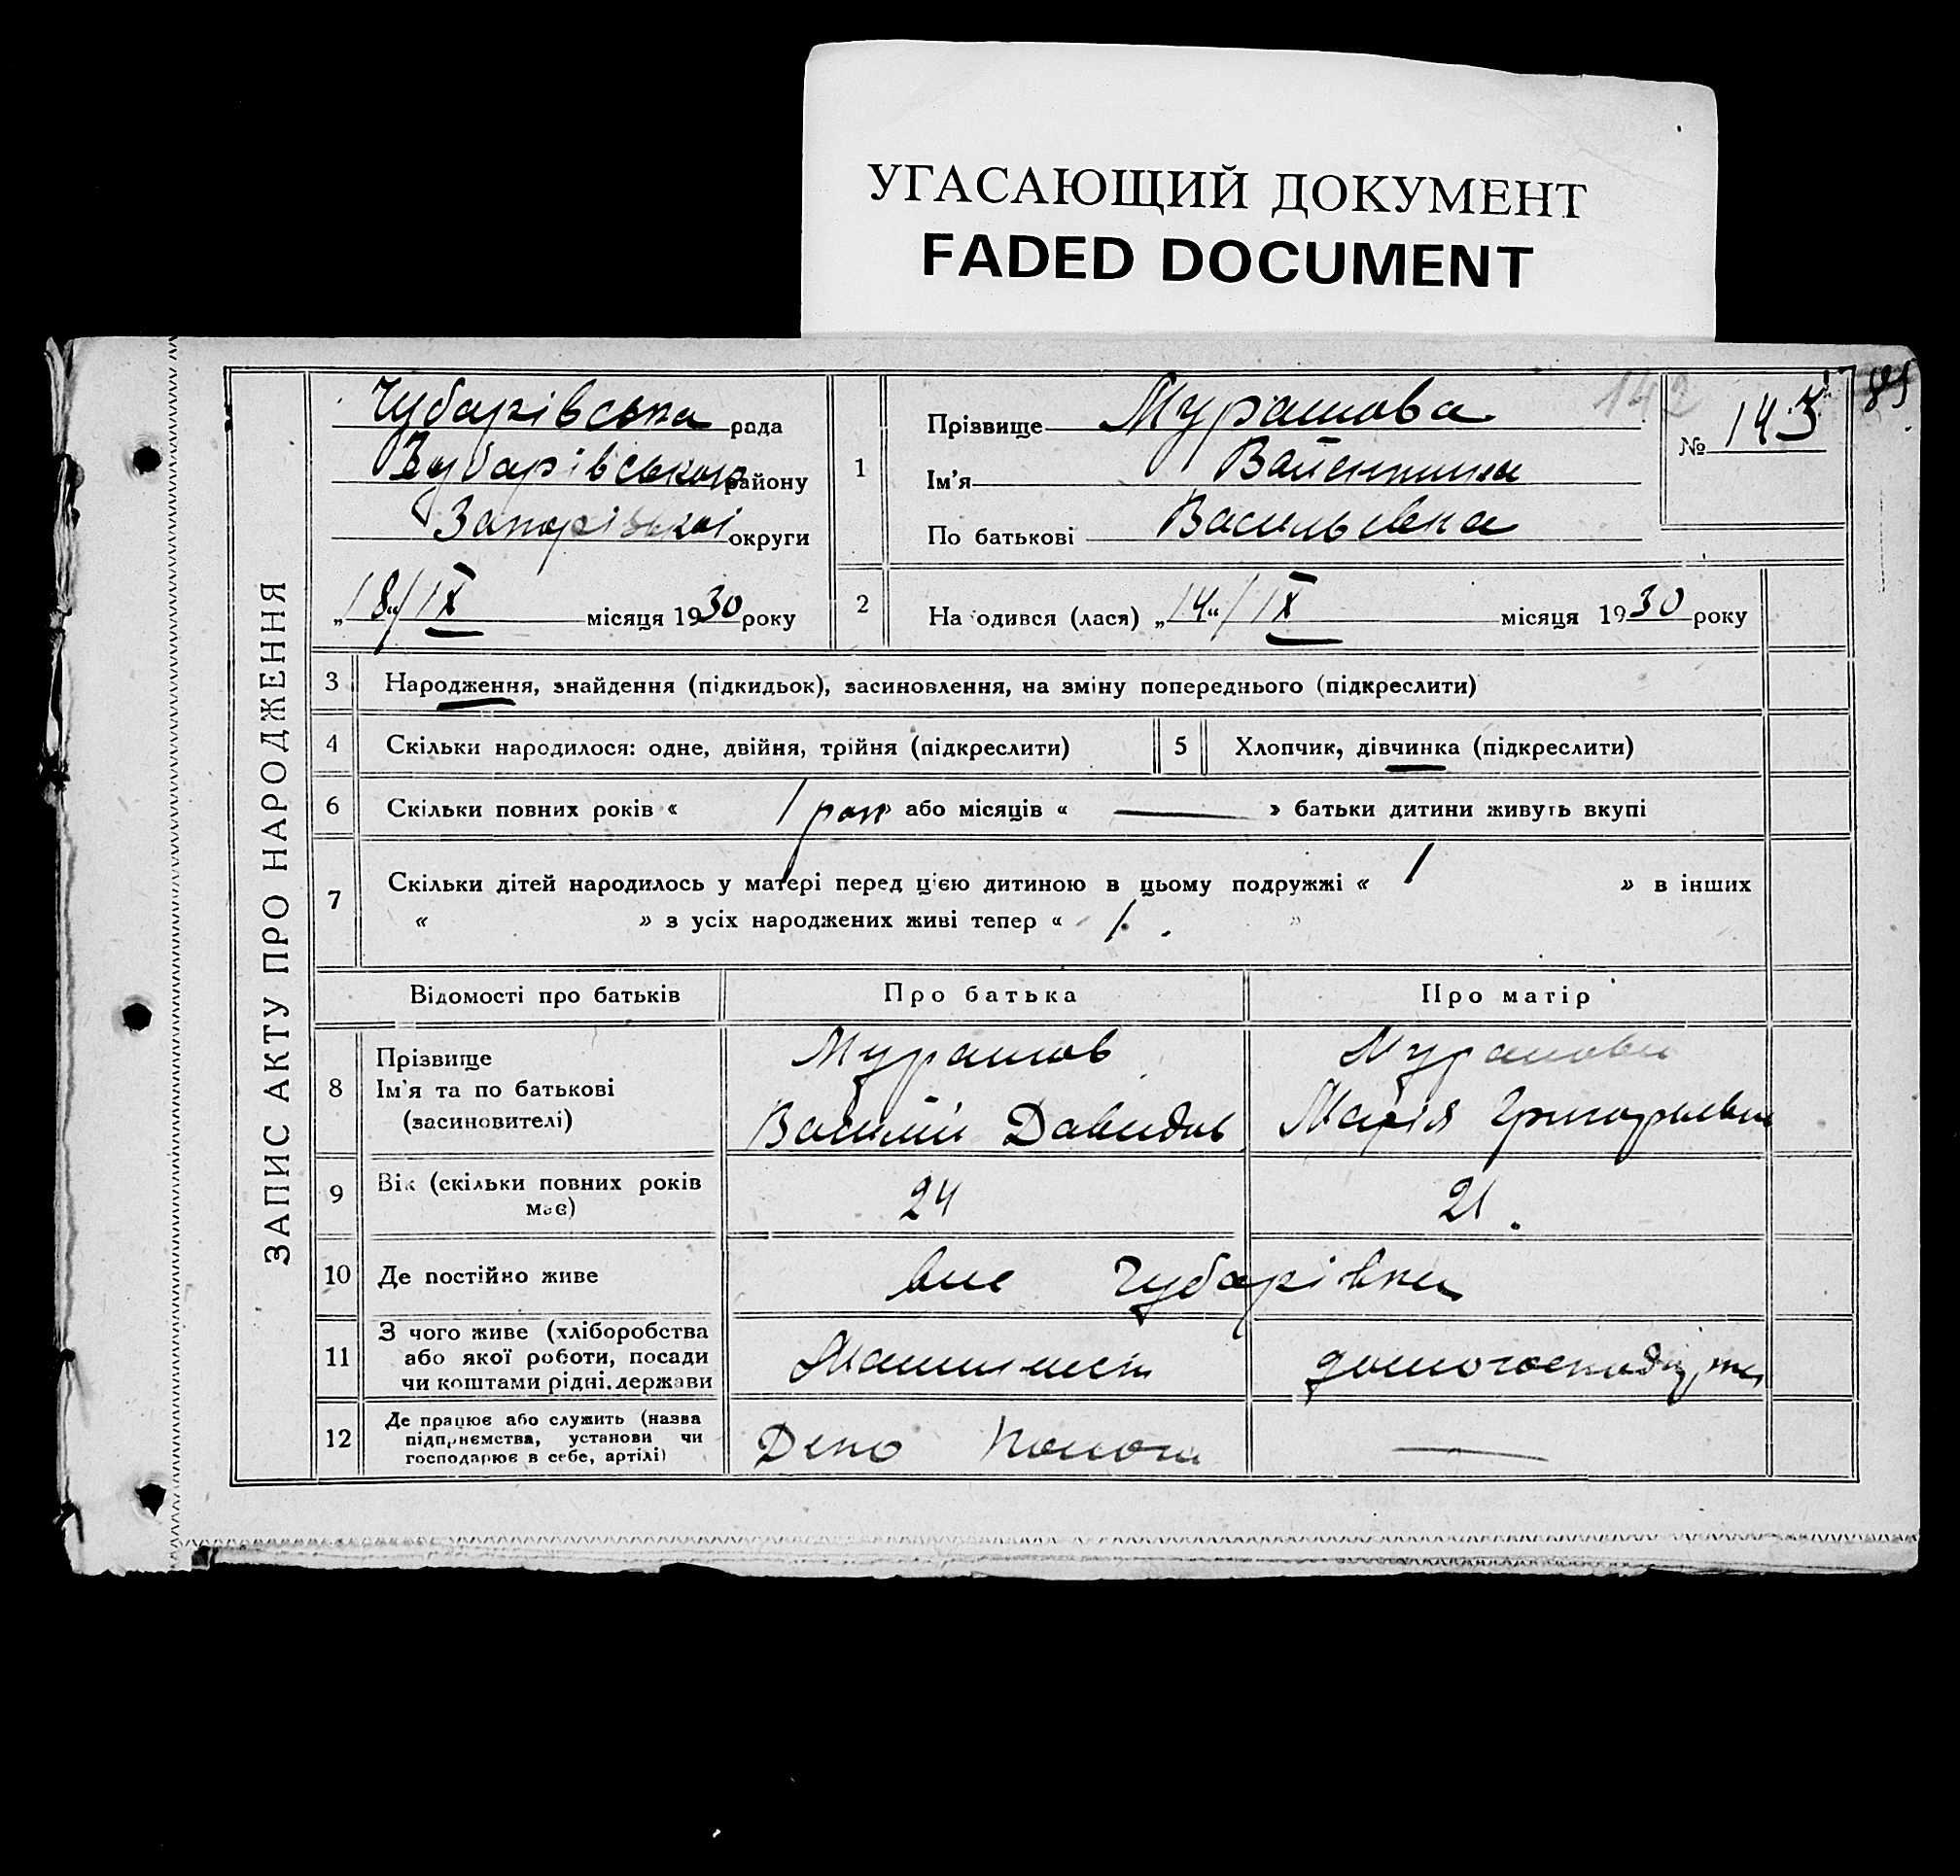 УГАСАЮЩИЙ ДОКУМЕНТ
FADED DOCUMENT
ЗАПИС АКТУ ПРО НАРОДЖЕННЯ
Чубарівська рада
Чубарівського району
Запорізької округи
„18“/IX місяця 1930 року
1
Прізвище Мурашова
Ім'я Валентина
По батькові Васильевна
142
№ 143
2
На одився (лася) „14“/IX місяця 1930 року
3 Народження, знайдення (підкидьок), засиновлення, на зміну попереднього (підкреслити)
4 Скільки народилося: одне, двійня, трійня (підкреслити)
5 Хлопчик, дівчинка (підкреслити)
6 Скільки повних років « 1 рок » або місяців « — » батьки дитини живуть вкупі
7 Скільки дітей народилось у матері перед цією дитиною в цьому подружжі « 1 » в інших
« » з усіх народжених живі тепер « 1. »
Відомості про батьків Про батька Про матір
8
Прізвище Мурашов Мурашова
Ім'я та по батькові
(засиновителі) Василій Давидов Марія Григорьевна
9 Вік (скільки повних років
має) 24 21.
10 Де постійно живе Чубарівка
11
З чого живе (хліборобства
або якої роботи, посади
чи коштами рідні. держави Машинист
12
Де працює або служить (назва
підприємства, установи чи
господарює в себе, артілі) Депо Пологи —